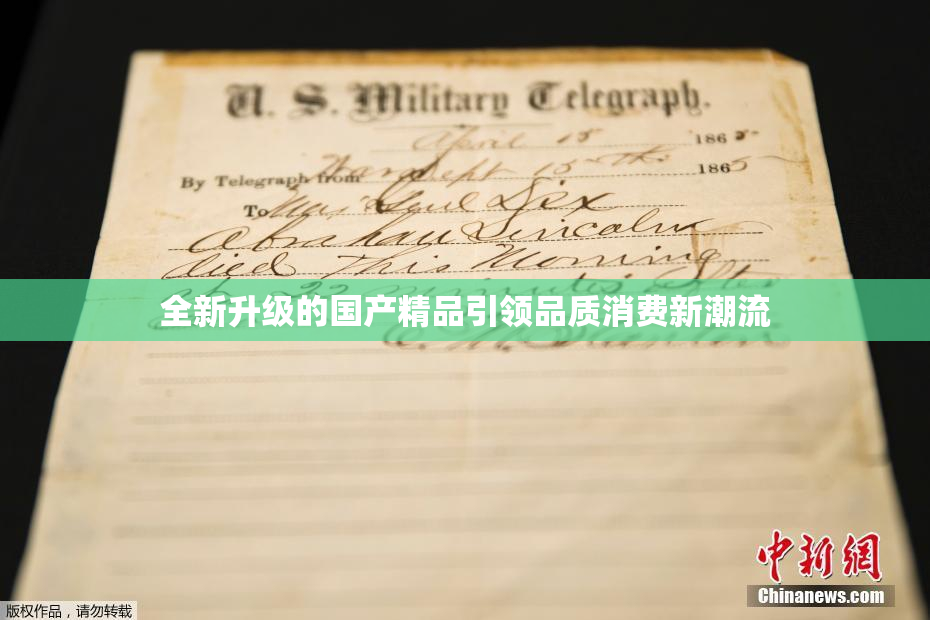 U. S. Military Telegraph.
April 15 1865
By Telegraph from War Dept 15th 1865
To Maj Genl Dix
Abraham Lincoln
died This Morning
at 22 minutes after
全新升级的国产精品引领品质消费新潮流
E. M. Stanton
中新网
Chinanews.com
版权作品，请勿转载